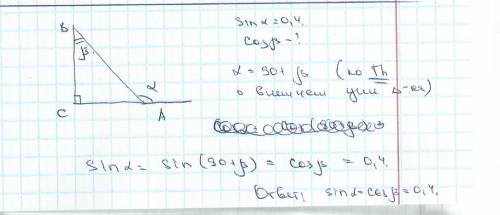 B
β
α
C
A
sin α = 0,4.
cos β - ?
α = 90 + β (по Th
о внешнем угле Δ-ка)
sin α = sin (90 + β) = cos β = 0,4.
Ответ: sin α = cos β = 0,4.